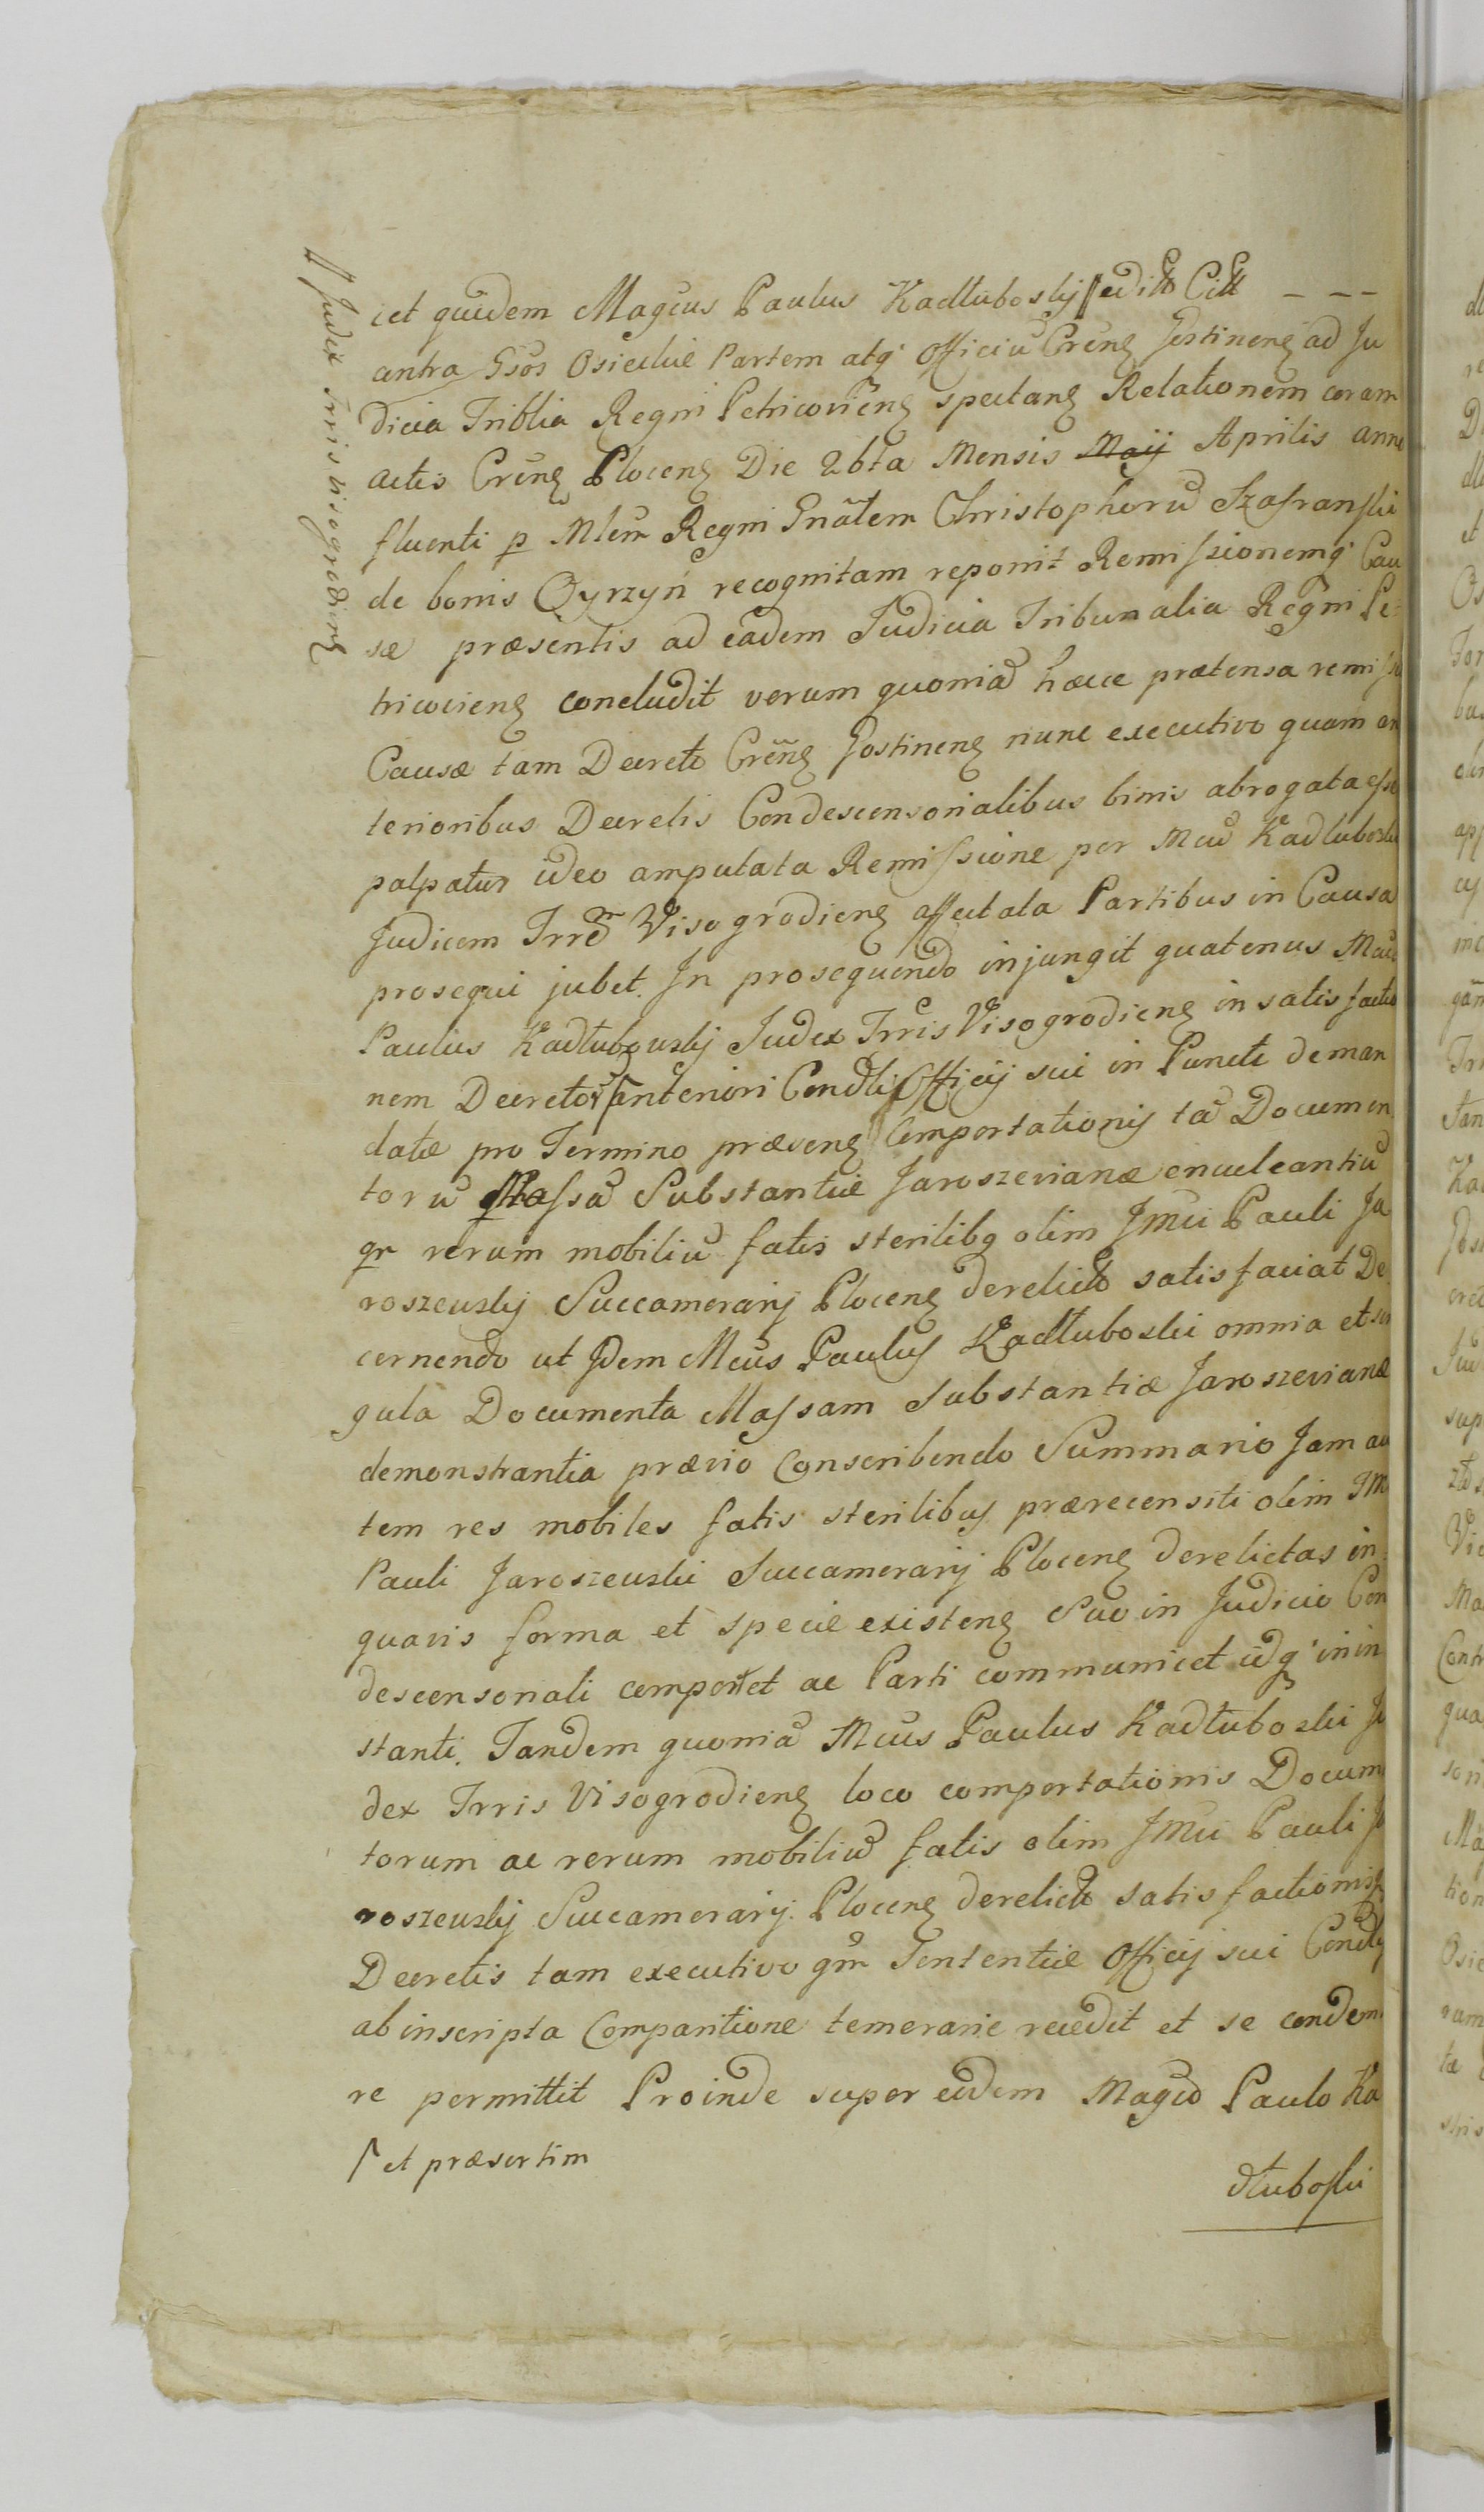 Judex Trris Visogrodien
cet quidem Magcus Paulus Kadłuboskij edito Citt – – –
contra Gsos Osieckie Partem atq Officiu Cren Gostinen ad Ju
dicia Triblia Regni Petricovien spectan Relationem coram
actis Cren Plocen Die 26ta Mensis Maij Aprilis anno
fluenti p Mlem Regni Gnalem Christophoru Szafranski
de bonis Qyrzyń recognitam reponit Remissionemq Cau
sæ præsentis ad eadem Judicia Tribunalia Regni Pe
tricovien concludit verum quonia hæcce prætensa remissio
Causæ tam Decreto Cren Gostinen nunc executivo quam an
terioribus Decretis Condescensorialibus binis abrogata esse
palpatur ideo amputata Remissione per Mcu Kadłuboski
Judicem Trrem Visogrodien affectata Partibus in Causa
prosequi jubet. In prosequendo injungit quatenus Mcus
Paulus Kadłubowskij Judex Trris Visogrodien in satisfactio
nem Decretor anteriori Condlis Officij sui in Puncto deman
datæ pro Termino præsen Comportationis ta Documen
toru Massa Substantiæ Jaroszevianæ enucleantiu
qr rerum mobiliu fatis sterilibq olim JMci Pauli Ja
roszewskij Succamerarij Plocen derelict satisfaciat De
cernendo ut Jdem Mcus Paulus Kadłuboski omnia et sin
gula Documenta Massam Substantiæ Jaroszevianæ
demonstrantia prævio Conscribendo Summario Jam au
tem res mobiles fatis sterilibus prærecensiti olim JM
Pauli Jaroszewski Succamerarij Plocen derelictas in
quavis forma et specie existen Suo in Judicio Con
descensoriali comportet ac Parti communicet idq in in
stanti. Tandem quonia Mcus Paulus Kadłuboski Ju
dex Trris Visogrodien loco comportationis Docum
torum ac rerum mobiliu fatis olim JMci Pauli Ja
roszewskij Succamerarij Plocen derelict satisfactionisq
Decretis tam executivo qm Sententiæ Officij sui Condlis
ab inscripta Comparitione temerarie recedit et se condem
re permittit Proinde super eodem Magco Paulo Ka
et præsertim
dłuboski